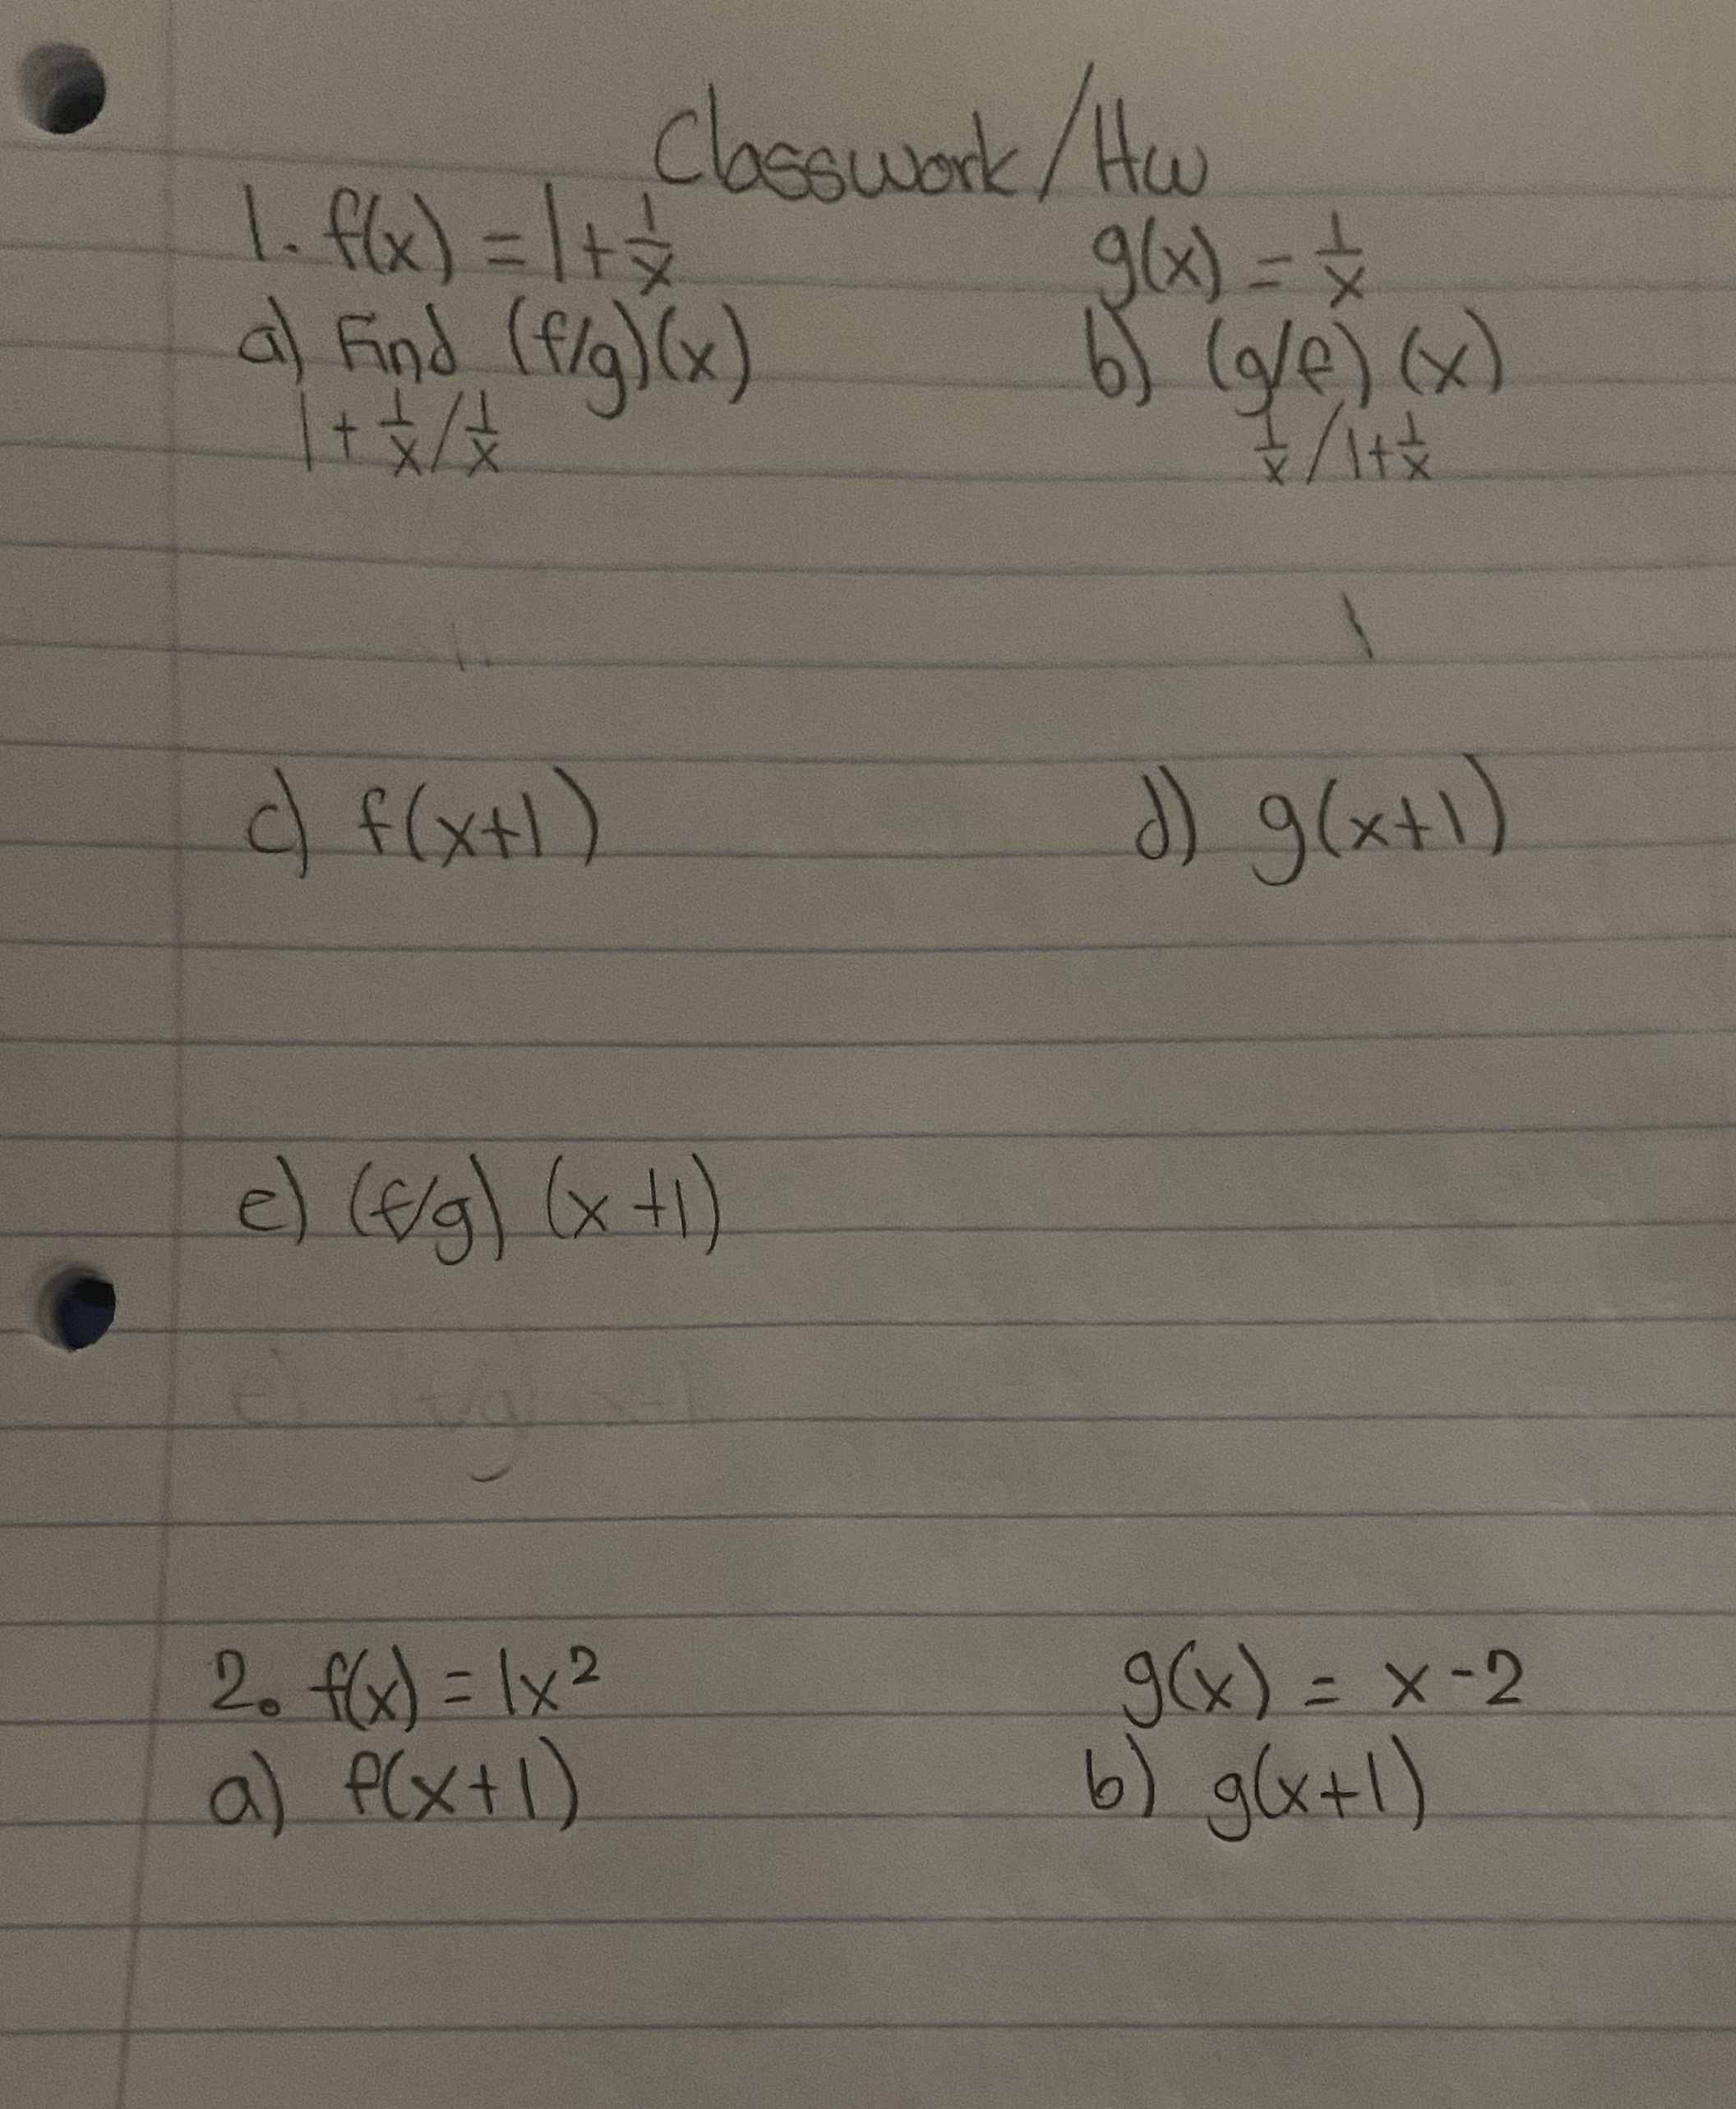 Classwork/Hw
1. f(x) = 1 + 1/x
g(x) = 1/x
a) Find (f/g)(x)
b) (g/f) (x)
1 + 1/x / 1/x
1/x / 1 + 1/x
c) f(x+1)
d) g(x+1)
e) (f/g) (x+1)
2. f(x) = 1x²
g(x) = x-2
a) f(x+1)
b) g(x+1)